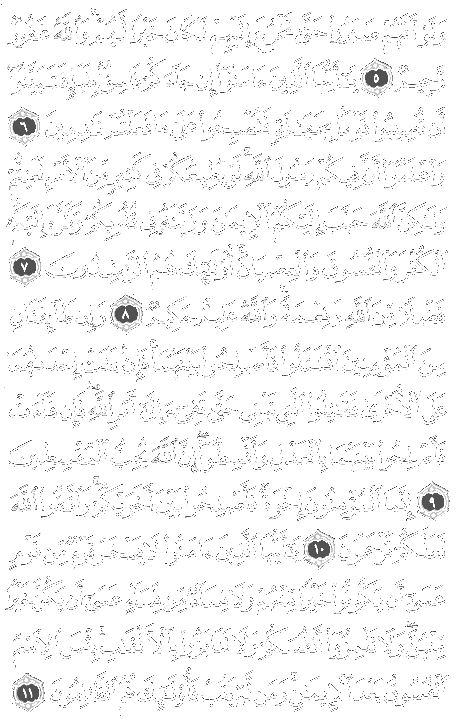 وَلَوْ أَنَّهُمْ صَبَرُوا۟ حَتَّىٰ تَخْرُجَ إِلَيْهِمْ لَكَانَ خَيْرًا لَّهُمْ ۚ وَٱللَّهُ غَفُورٌ
رَّحِيمٌ ٥ يَـٰٓأَيُّهَا ٱلَّذِينَ ءَامَنُوٓا۟ إِن جَآءَكُمْ فَاسِقٌۢ بِنَبَإٍ فَتَبَيَّنُوٓا۟
أَن تُصِيبُوا۟ قَوْمًۢا بِجَهَـٰلَةٍ فَتُصْبِحُوا۟ عَلَىٰ مَا فَعَلْتُمْ نَـٰدِمِينَ ٦
وَٱعْلَمُوٓا۟ أَنَّ فِيكُمْ رَسُولَ ٱللَّهِ ۚ لَوْ يُطِيعُكُمْ فِى كَثِيرٍ مِّنَ ٱلْأَمْرِ لَعَنِتُّمْ
وَلَـٰكِنَّ ٱللَّهَ حَبَّبَ إِلَيْكُمُ ٱلْإِيمَـٰنَ وَزَيَّنَهُۥ فِى قُلُوبِكُمْ وَكَرَّهَ إِلَيْكُمُ
ٱلْكُفْرَ وَٱلْفُسُوقَ وَٱلْعِصْيَانَ ۚ أُو۟لَـٰٓئِكَ هُمُ ٱلرَّٰشِدُونَ ٧
فَضْلًا مِّنَ ٱللَّهِ وَنِعْمَةً ۚ وَٱللَّهُ عَلِيمٌ حَكِيمٌ ٨ وَإِن طَآئِفَتَانِ
مِنَ ٱلْمُؤْمِنِينَ ٱقْتَتَلُوا۟ فَأَصْلِحُوا۟ بَيْنَهُمَا ۖ فَإِنۢ بَغَتْ إِحْدَىٰهُمَا
عَلَى ٱلْأُخْرَىٰ فَقَـٰتِلُوا۟ ٱلَّتِى تَبْغِى حَتَّىٰ تَفِىٓءَ إِلَىٰٓ أَمْرِ ٱللَّهِ ۚ فَإِن فَآءَتْ
فَأَصْلِحُوا۟ بَيْنَهُمَا بِٱلْعَدْلِ وَأَقْسِطُوٓا۟ ۖ إِنَّ ٱللَّهَ يُحِبُّ ٱلْمُقْسِطِينَ
٩ إِنَّمَا ٱلْمُؤْمِنُونَ إِخْوَةٌ فَأَصْلِحُوا۟ بَيْنَ أَخَوَيْكُمْ ۚ وَٱتَّقُوا۟ ٱللَّهَ
لَعَلَّكُمْ تُرْحَمُونَ ١٠ يَـٰٓأَيُّهَا ٱلَّذِينَ ءَامَنُوا۟ لَا يَسْخَرْ قَوْمٌ مِّن قَوْمٍ
عَسَىٰٓ أَن يَكُونُوا۟ خَيْرًا مِّنْهُمْ وَلَا نِسَآءٌ مِّن نِّسَآءٍ عَسَىٰٓ أَن يَكُنَّ خَيْرًا
مِّنْهُنَّ ۖ وَلَا تَلْمِزُوٓا۟ أَنفُسَكُمْ وَلَا تَنَابَزُوا۟ بِٱلْأَلْقَـٰبِ ۖ بِئْسَ ٱلِٱسْمُ
ٱلْفُسُوقُ بَعْدَ ٱلْإِيمَـٰنِ ۚ وَمَن لَّمْ يَتُبْ فَأُو۟لَـٰٓئِكَ هُمُ ٱلظَّـٰلِمُونَ ١١